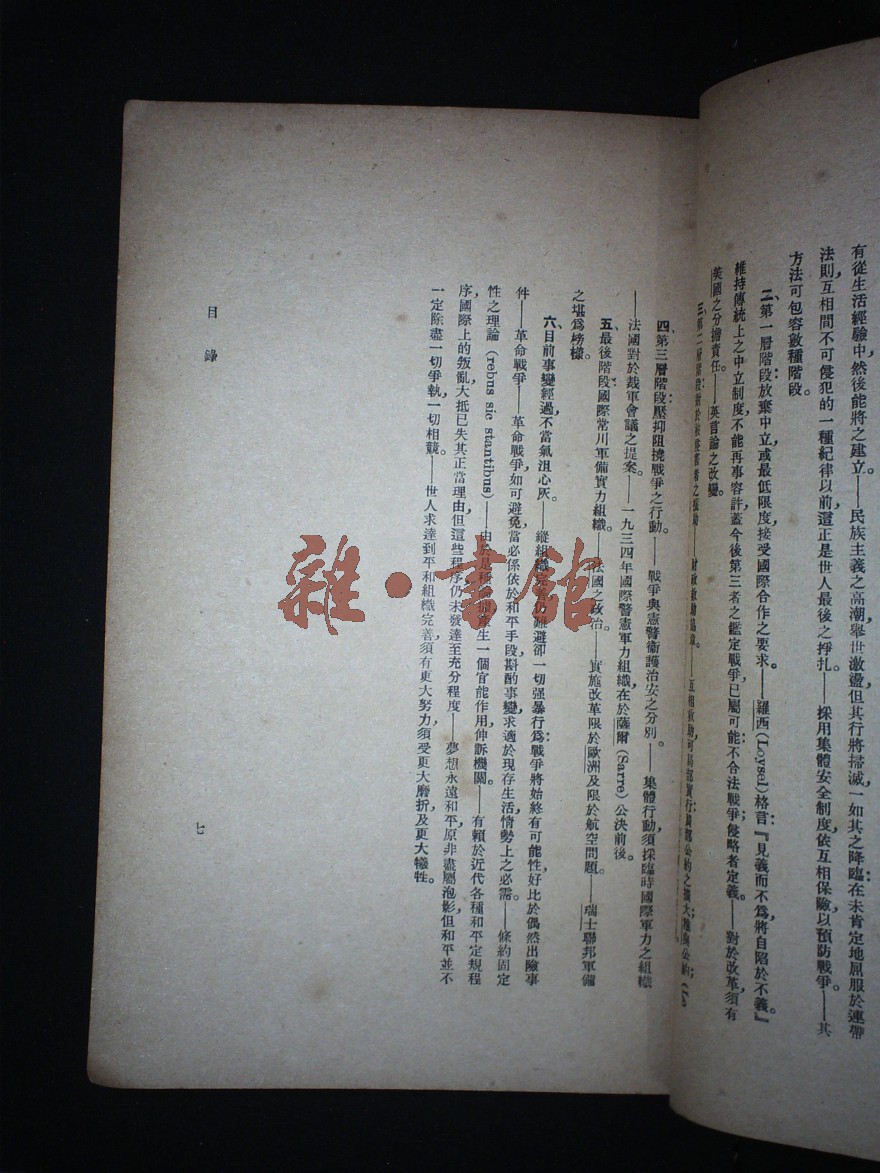 有從生活經驗中,然後能將之建立。——民族主義之高潮,舉世激盪,但其行將掃滅,一如其之降臨,在未肯定地屈服於連帶
法則互相間不可侵犯的一種紀律以前,這正是世人最後之掙扎。——採用集體安全制度,依互相保險以預防戰爭。——其
方法可包容數種階段。
二、第一層階段:放棄中立,或最低限度接受國際合作之要求。——羅西(Loysel)格言:『見義而不爲,將自陷於不義。』
維持傳統上之中立制度,不能再事容許,蓋今後第三者之鑑定戰爭,已屬可能:不合法戰爭,侵略者定義。——對於改革,須有
英國之分擔責任。——英言論之改變。
三、第二層階段:
財政救助協約。——互相救助可局部實行:
四、第三層階段:壓抑阻撓戰爭之行動。——戰爭與憲警衛護治安之分別。——集體行動須採臨時國際軍力之組織。
——法國對於裁軍會議之提案。——一九三四年國際警憲軍力組織,在於薩爾(Sarre)公決前後。
五、最後階段:國際常川軍備實力組織。——法國之政治。——實施改革,限於歐洲及限於航空問題。——瑞士聯邦軍備
之堪爲榜樣。
六、目前事變經過,不當氣沮心灰。——縱組織完善,仍難避卻一切强暴行爲:戰爭將始終有可能性,好比於偶然出險事
件。——革命戰爭。——革命戰爭如可避免,當必係依於和平手段,斟酌事變,求適於現存生活情勢上之必需。——條約固定
性之理論(rebus sic stantibus)——由於是種論據產生一個官能作用:伸訴機關。——有賴於近代各種和平定規程
序,國際上的叛亂,大抵已失其正當理由,但這些程序仍未發達至充分程度。——夢想永遠和平,原非盡屬泡影,但和平並不
一定除盡一切爭執,一切相競。——世人求達到平和組織完善,須有更大努力,須受更大磨折,及更大犧牲。
目錄
七
雜·書館